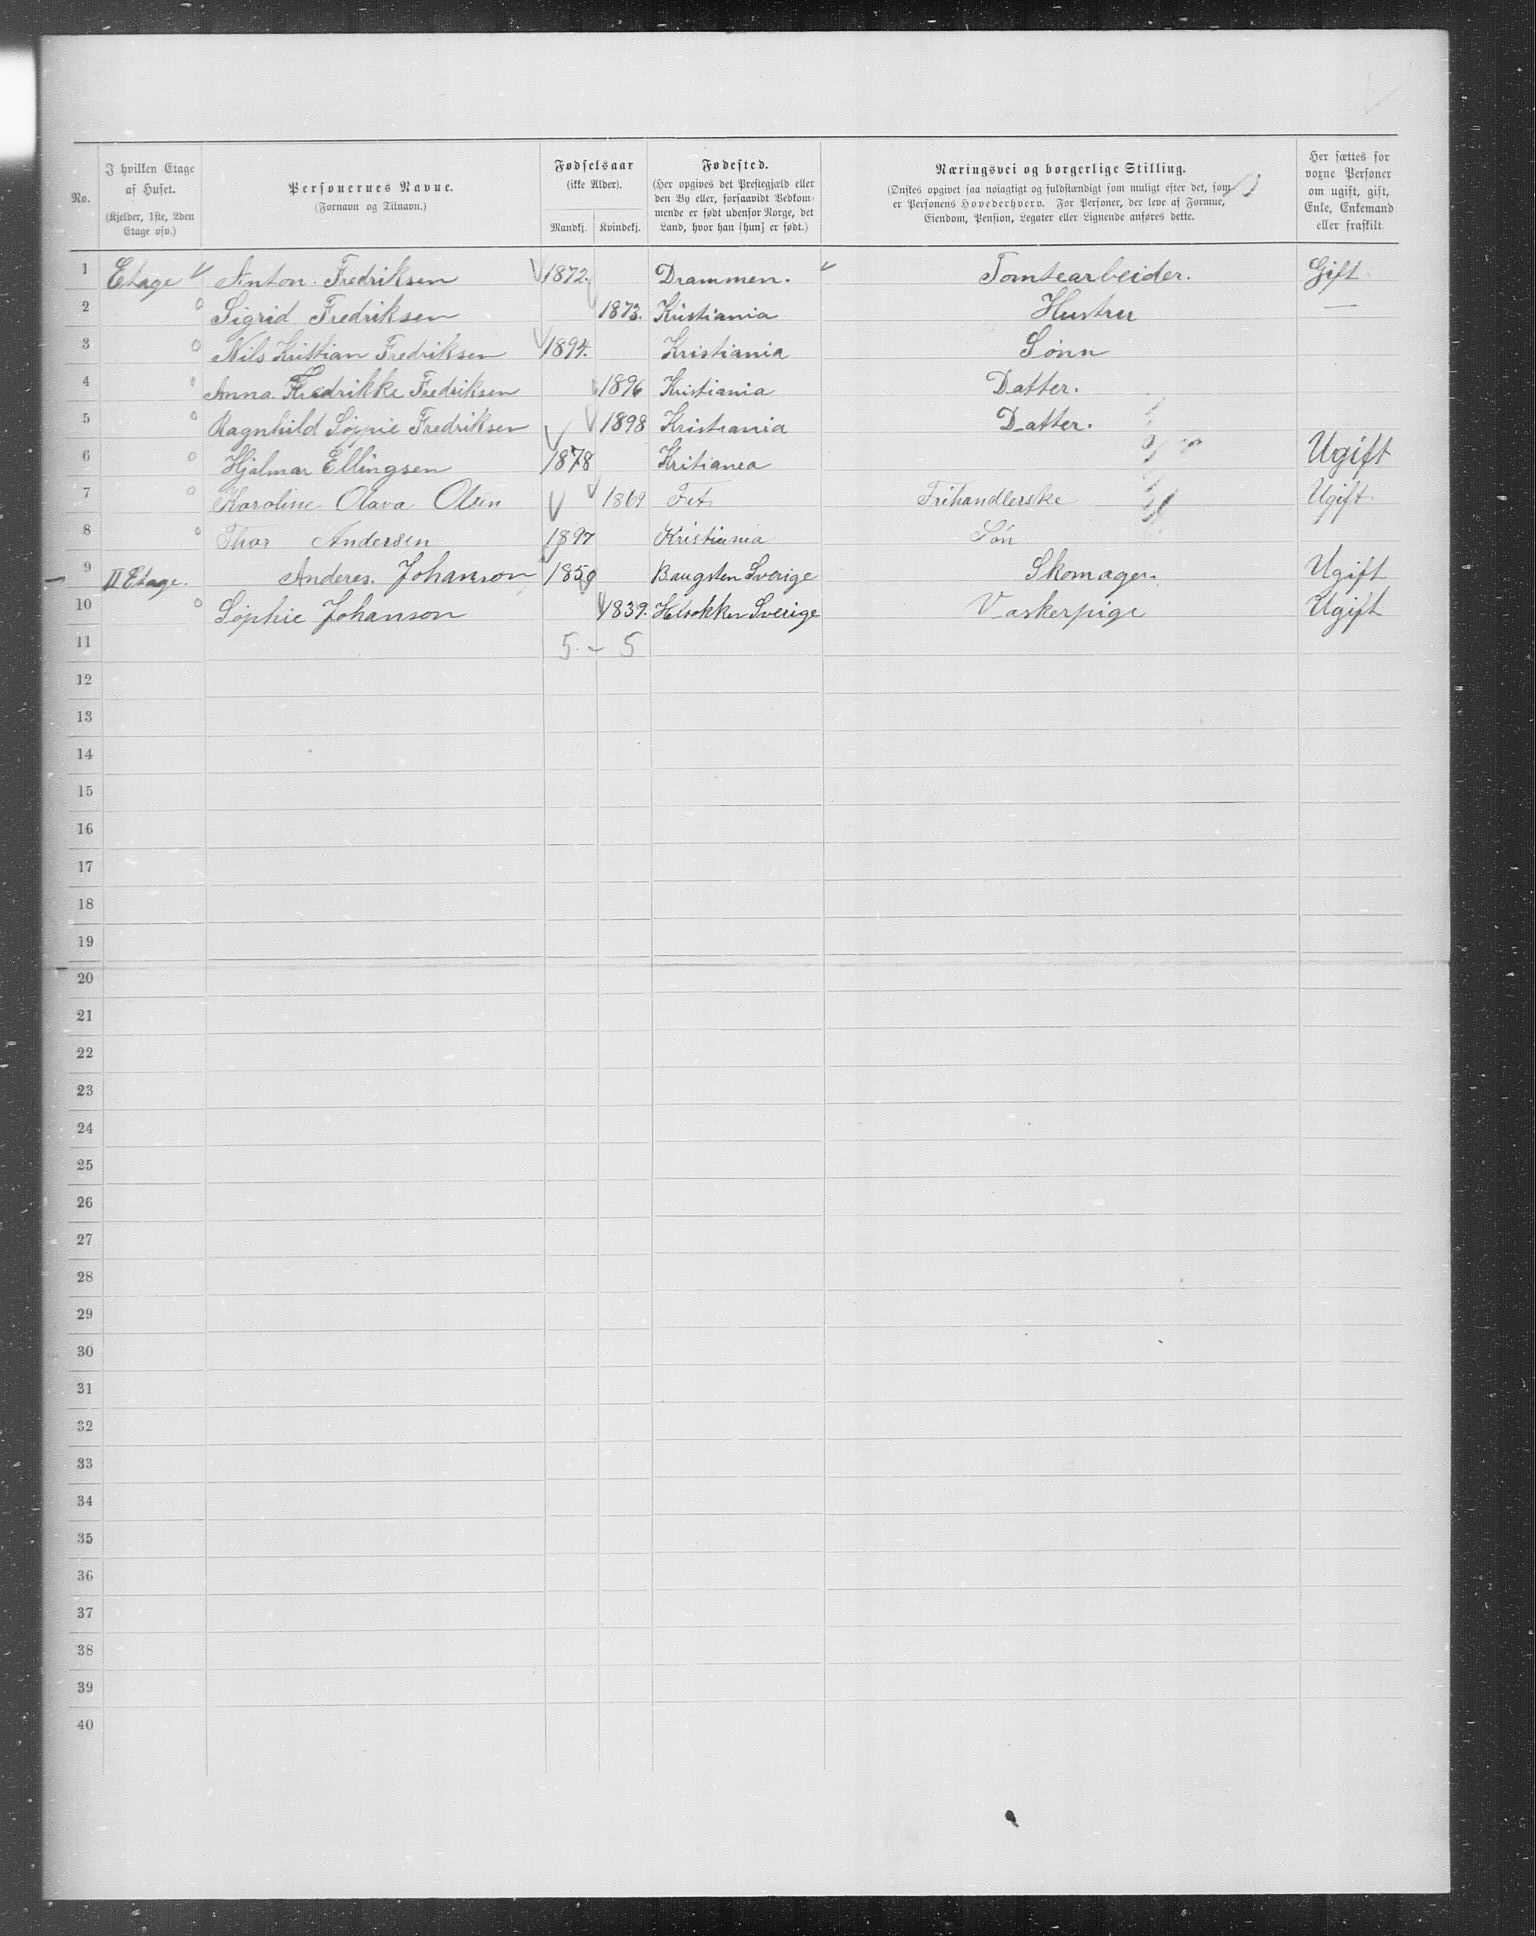 No. | I hvilken Etage af Huset. (Kjelder, 1ste, 2den Etage osv.) | Personernes Navne. (Fornavn og Tilnavn.) | Fødselsaar (ikke Alder). Mandkj. | Kvindekj. | Fødested. (Her opgives det Prestegjæld eller den By eller, forsaavidt Vedkommende er født udenfor Norge, det Land, hvor han [hun] er født.) | Næringsvei og borgerlige Stilling. (Ønskes opgivet saa nøiagtigt og fuldstændigt som muligt efter det, som er Personens Hovederhverv. For Personer, der leve af Formue, Eiendom, Pension, Legater eller Lignende anføres dette. | Her sættes for voxne Personer om ugift, gift, Enke, Enkemand eller fraskilt.
1 Etage Anton Fredriksen 1872. Drammen. Tomtearbeider. Gift
2 Sigrid Fredriksen 1873. Kristiania Hustru —
3 Nils Kristian Fredriksen 1894. Kristiania Sønn
4 Anna Fredrikke Fredriksen 1896 Kristiania Datter.
5 Ragnhild Sofie Fredriksen 1898 Kristiania Datter.
6 Hjalmar Ellingsen 1878 Kritianea Ugift
7 Karoline Olava Olsen 1869 Fet Frihandlerske Ugift
8 Thor Andersen 1897 Kristiania Søn
9 II Etage. Anderes. Johanson 1850 Sverige Skomager. Ugift
10 Sophie Johanson 1839. Sverige Vaskerpige Ugift
11 5 - 5
12
13
14
15
16
17
18
19
20
21
22
23
24
25
26
27
28
29
30
31
32
33
34
35
36
37
38
39
40